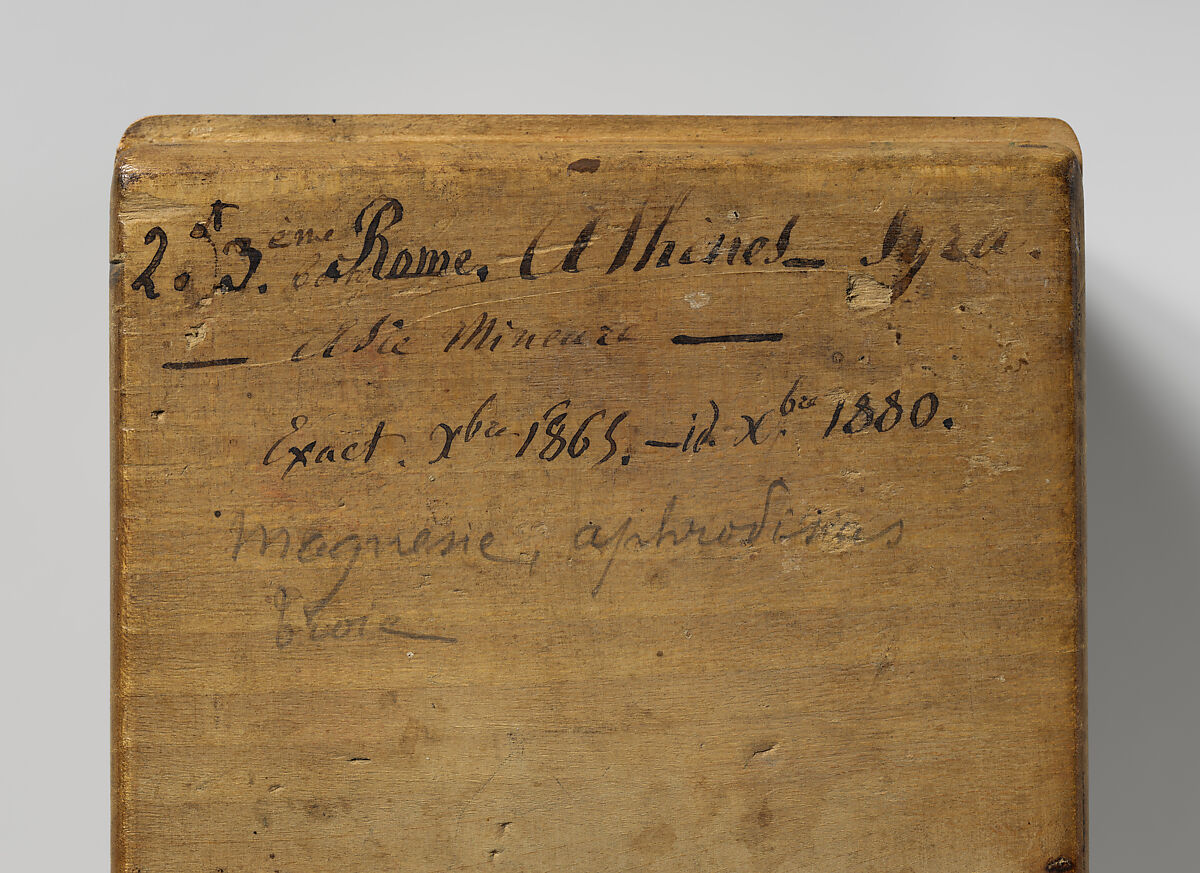 2. 3.ème Rome. Athènes_ Syra.
— Asie Mineure —
Exact. Xbre 1865. — id. X.bre 1880.
Magnesie, aphrodisias
Troie